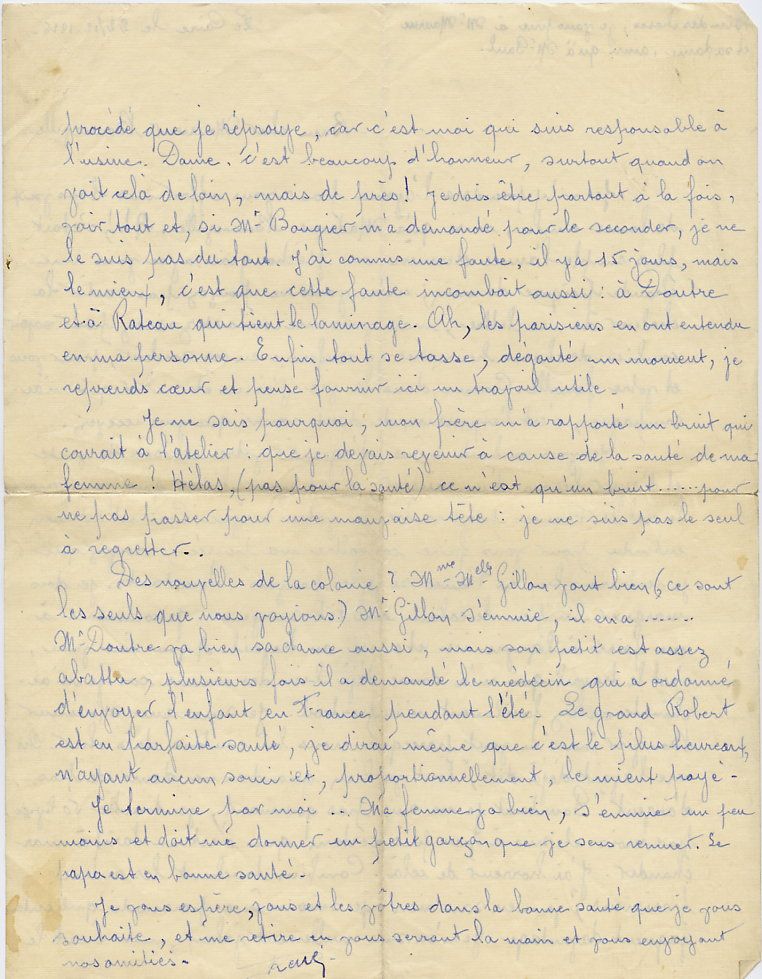 procédé que je réprouve, car c'est moi qui suis responsable à
l'usine. Dame. c'est beaucoup d'honneur, surtout quand on
voit celà de loin, mais de près! je dois être partout à la fois,
voir tout et, si Mr Bougier m'a demandé pour le seconder, je ne
le suis pas du tout. J'ai commis une faute, il y a 15 jours, mais
le mieux, c'est que cette faute incombait aussi : à Doutre
et à Rateau qui tient le laminage. Ah, les parisiens en ont entendu
en ma personne. Enfin tout se tasse, dégouté un moment, je
reprends cœur et pense fournir ici un travail utile.
Je ne sais pourquoi, mon frère m'a rapporté un bruit qui
courait à l'atelier : que je devais revenir à cause de la santé de ma
femme ? Hélas, (pas pour la santé) ce n'est qu'un bruit ...... pour
ne pas passer pour une mauvaise tête : je ne suis pas le seul
à regretter..
Des nouvelles de la colonie ? Mme Melle Gillon vont bien (ce sont
les seuls que nous voyions) Mr Gillon s'ennuie, il en a .......
Mr Doutre va bien sa dame aussi, mais son petit est assez
abattu, plusieurs fois il a demandé le médecin qui a ordonné
d'envoyer l'enfant en France pendant l'été. Le grand Robert
est en parfaite santé, je dirai même que c'est le plus heureux,
n'ayant aucun souci et, proportionnellement, le mieux payé -
Je termine par moi ... Ma femme va bien, s'ennuie un peu
moins et doit me donner un petit garçon que je sens remuer. Le
papa est en bonne santé.
Je vous espère, vous et les vôtres dans la bonne santé que je vous
souhaite, et me retire en vous serrant la main et vous envoyant
nos amitiés.